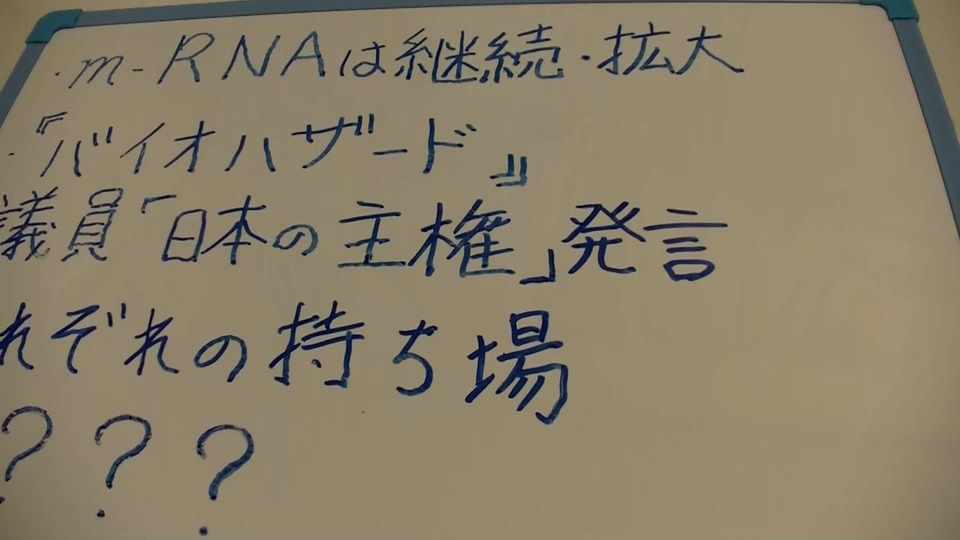 ・m-RNAは継続・拡大
・『バイオハザード』
議員「日本の主権」発言
れぞれの持ち場
???